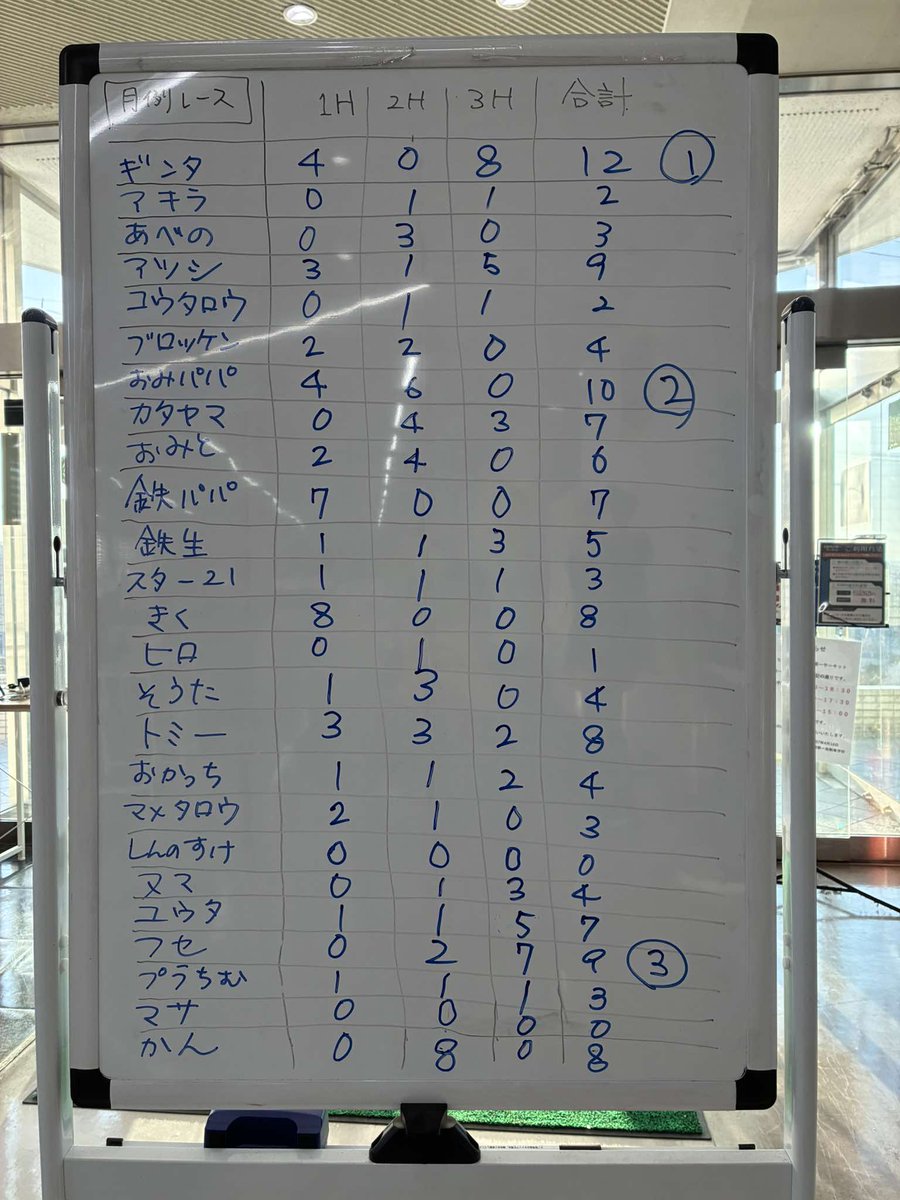 月例レース 1H 2H 3H 合計
ギンタ 4 0 8 12 ①
アキラ 0 1 1 2
あべの 0 3 0 3
アツシ 3 1 5 9
コウタロウ 0 1 1 2
ブロッケン 2 2 0 4
おみパパ 4 6 0 10 ②
カタヤマ 0 4 3 7
おみと 2 4 0 6
鉄パパ 7 0 0 7
鉄生 1 1 3 5
スター21 1 1 1 3
きく 8 0 0 8
ヒロ 0 1 0 1
そうた 1 3 0 4
トミー 3 3 2 8
おかっち 1 1 2 4
マメタロウ 2 1 0 3
しんのすけ 0 0 0 0
ヌマ 0 1 3 4
ユウタ 1 1 5 7
フセ 0 2 7 9 ③
プラちむ 1 1 1 3
マサ 0 0 0 0
かん 0 8 0 8
ご利用方法